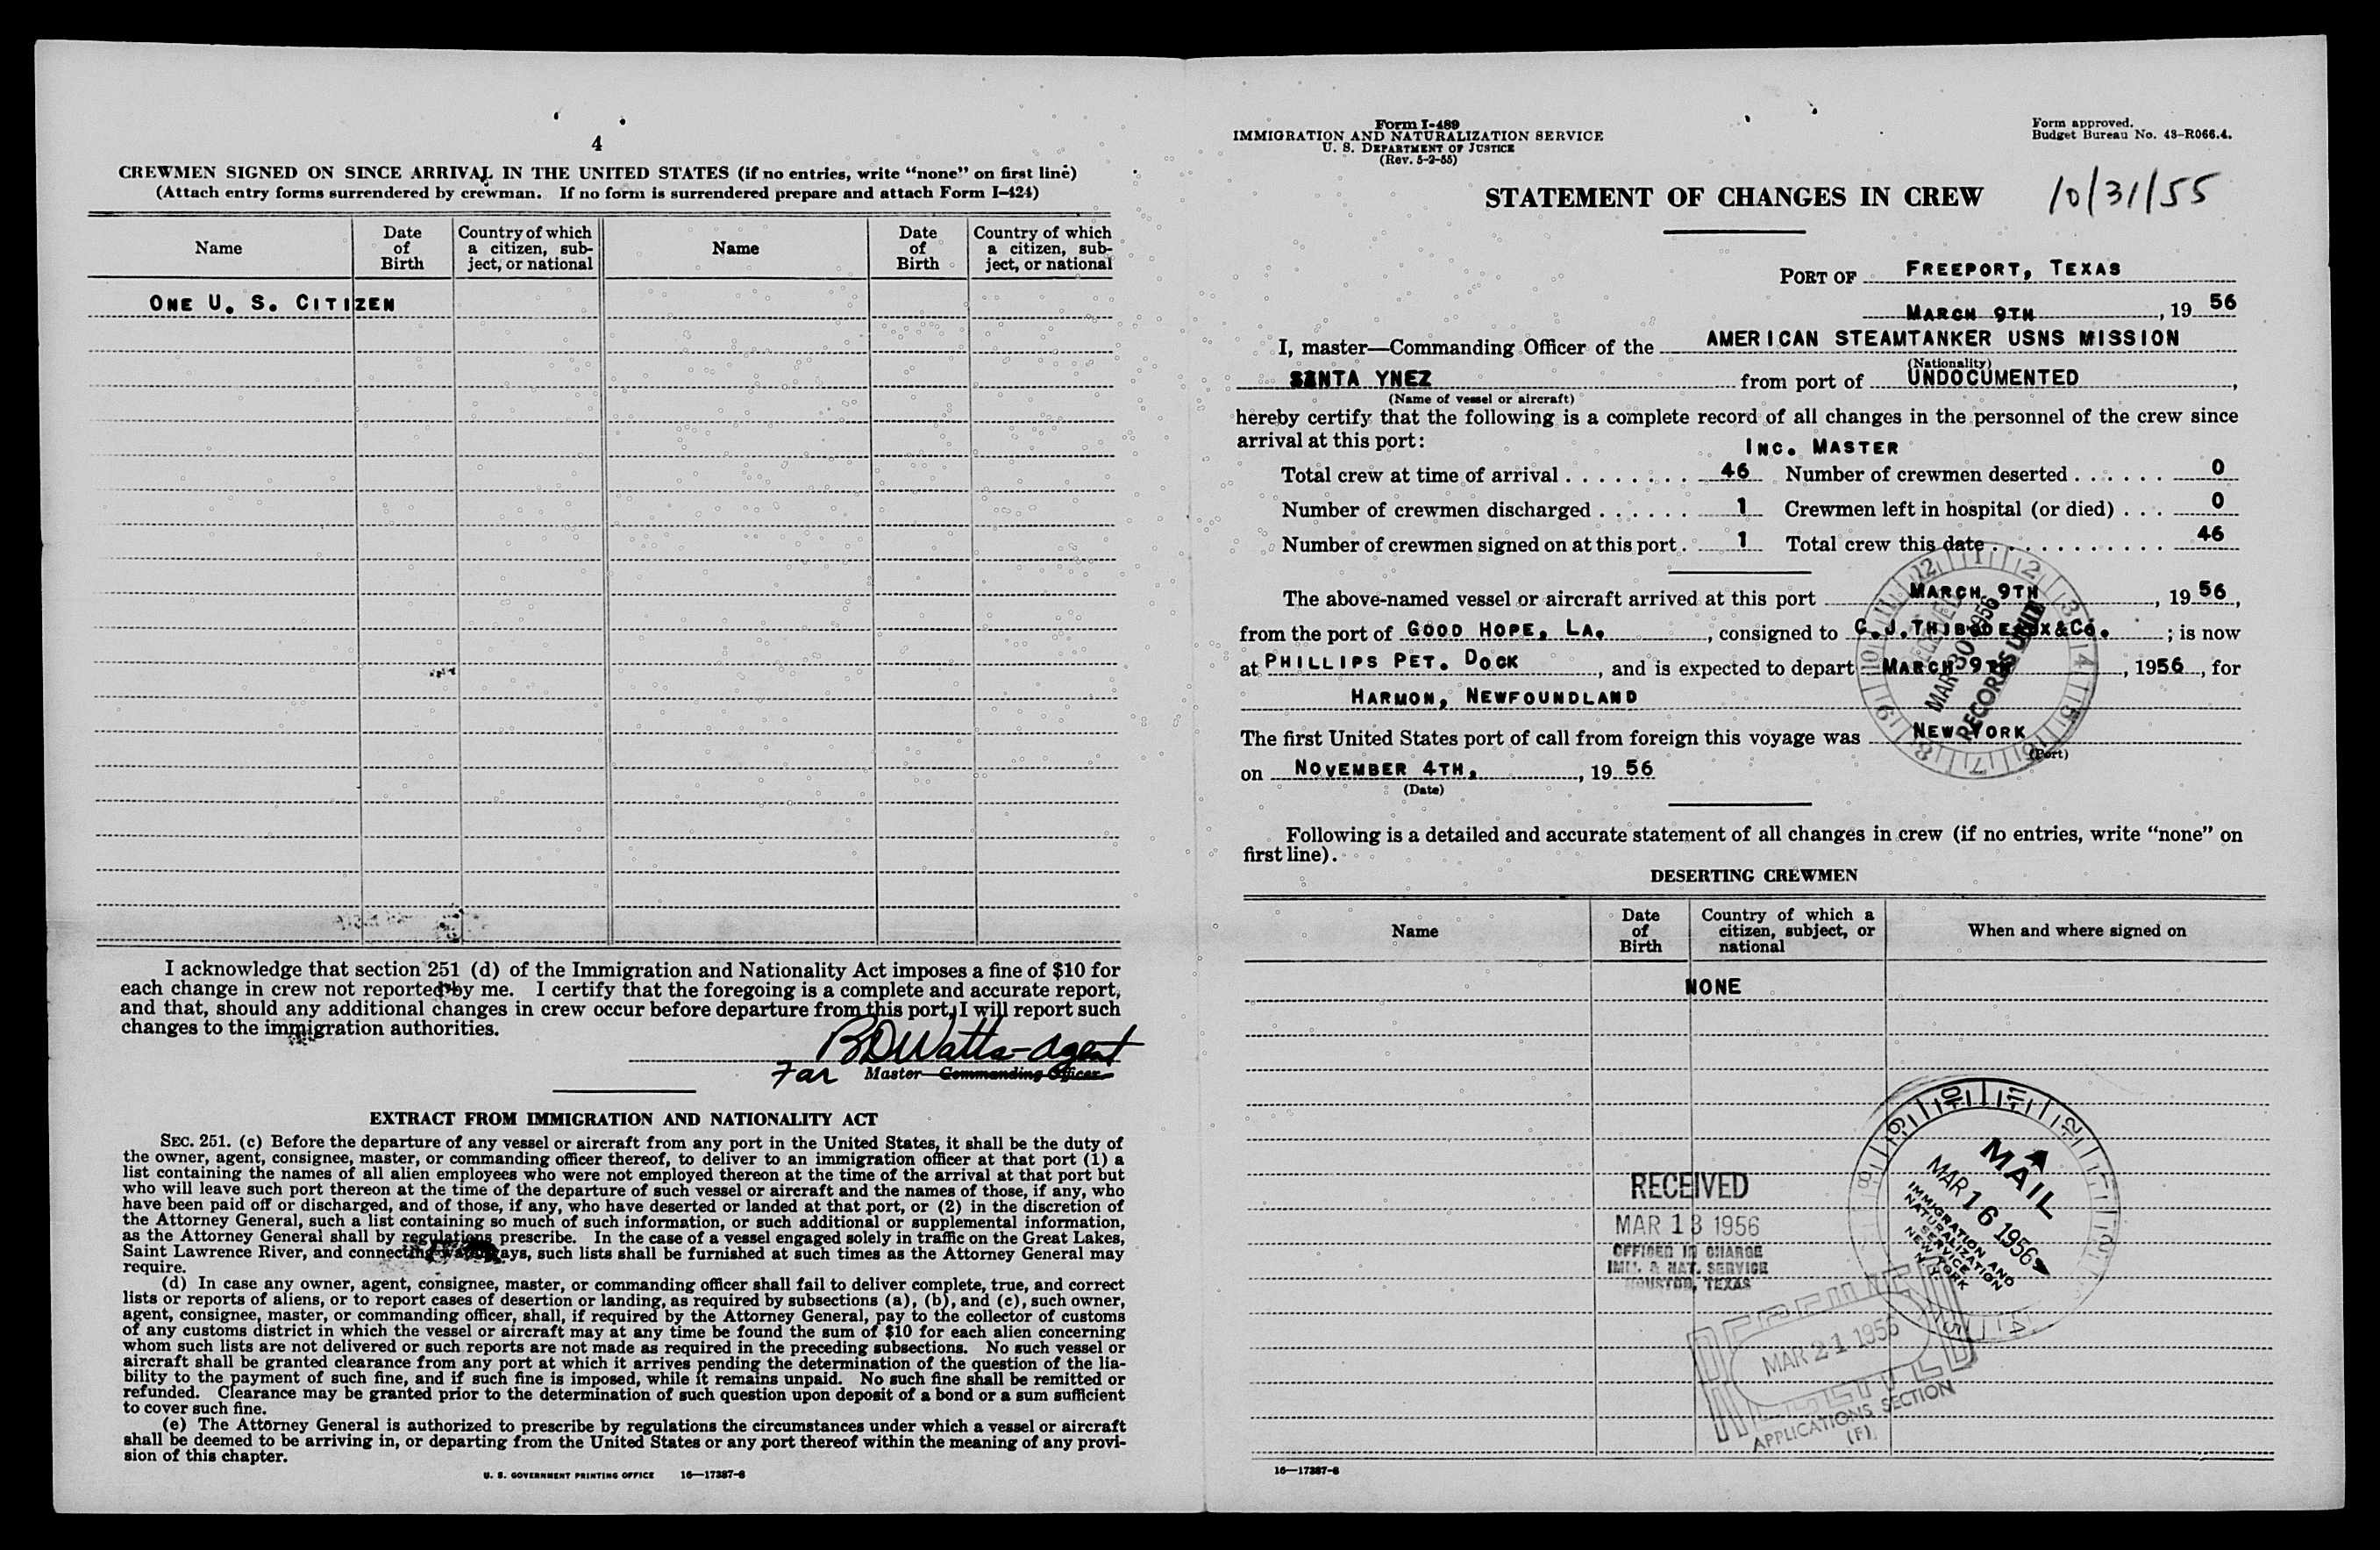 4
CREWMEN SIGNED ON SINCE ARRIVAL IN THE UNITED STATES (if no entries, write “none” on first line)
(Attach entry forms surrendered by crewman. If no form is surrendered prepare and attach Form I–424)
Name | Date of Birth | Country of which a citizen, sub-ject, or national | Name | Date of Birth | Country of which a citizen, sub-ject, or national
ONE U. S. CITIZEN
I acknowledge that section 251 (d) of the Immigration and Nationality Act imposes a fine of $10 for
each change in crew not reported by me. I certify that the foregoing is a complete and accurate report,
and that, should any additional changes in crew occur before departure from this port, I will report such
changes to the immigration authorities.
BDWatts-Agent
For Master—Commanding Officer
EXTRACT FROM IMMIGRATION AND NATIONALITY ACT
SEC. 251. (c) Before the departure of any vessel or aircraft from any port in the United States, it shall be the duty of
the owner, agent, consignee, master, or commanding officer thereof, to deliver to an immigration officer at that port (1) a
list containing the names of all alien employees who were not employed thereon at the time of the arrival at that port but
who will leave such port thereon at the time of the departure of such vessel or aircraft and the names of those, if any, who
have been paid off or discharged, and of those, if any, who have deserted or landed at that port, or (2) in the discretion of
the Attorney General, such a list containing so much of such information, or such additional or supplemental information,
as the Attorney General shall by regulations prescribe. In the case of a vessel engaged solely in traffic on the Great Lakes,
Saint Lawrence River, and connecting waterways, such lists shall be furnished at such times as the Attorney General may
require.
(d) In case any owner, agent, consignee, master, or commanding officer shall fail to deliver complete, true, and correct
lists or reports of aliens, or to report cases of desertion or landing, as required by subsections (a), (b), and (c), such owner,
agent, consignee, master, or commanding officer, shall, if required by the Attorney General, pay to the collector of customs
of any customs district in which the vessel or aircraft may at any time be found the sum of $10 for each alien concerning
whom such lists are not delivered or such reports are not made as required in the preceding subsections. No such vessel or
aircraft shall be granted clearance from any port at which it arrives pending the determination of the question of the lia-
bility to the payment of such fine, and if such fine is imposed, while it remains unpaid. No such fine shall be remitted or
refunded. Clearance may be granted prior to the determination of such question upon deposit of a bond or a sum sufficient
to cover such fine.
(e) The Attorney General is authorized to prescribe by regulations the circumstances under which a vessel or aircraft
shall be deemed to be arriving in, or departing from the United States or any port thereof within the meaning of any provi-
sion of this chapter.
U. S. GOVERNMENT PRINTING OFFICE 16—17387-6
Form I-489
IMMIGRATION AND NATURALIZATION SERVICE
U. S. DEPARTMENT OF JUSTICE
(Rev. 5-2-55)
Form approved.
Budget Bureau No. 43–R066.4.
STATEMENT OF CHANGES IN CREW
10/31/55
PORT OF FREEPORT, TEXAS
MARCH 9TH, 19 56
I, master—Commanding Officer of the AMERICAN STEAMTANKER USNS MISSION
(Nationality)
SANTA YNEZ from port of UNDOCUMENTED,
(Name of vessel or aircraft)
hereby certify that the following is a complete record of all changes in the personnel of the crew since
arrival at this port:
INC. MASTER
Total crew at time of arrival 46 Number of crewmen deserted 0
Number of crewmen discharged 1 Crewmen left in hospital (or died) 0
Number of crewmen signed on at this port 1 Total crew this date 46
The above-named vessel or aircraft arrived at this port MARCH 9TH, 19 56,
from the port of GOOD HOPE, LA., consigned to C.J.THIBODEAUX&CO.; is now
at PHILLIPS PET. DOCK, and is expected to depart MARCH 9TH, 1956, for
HARMON, NEWFOUNDLAND
The first United States port of call from foreign this voyage was NEW YORK
(Port)
on NOVEMBER 4TH, 19 56
(Date)
RECEIVED
MAR 30 1956
RECORDS UNIT
12 1 2 3 4 5 6 7 8 9 10 11
Following is a detailed and accurate statement of all changes in crew (if no entries, write “none” on
first line).
DESERTING CREWMEN
Name | Date of Birth | Country of which a citizen, subject, or national | When and where signed on
NONE
RECEIVED
MAR 13 1956
OFFICER IN CHARGE
IMM. & NAT. SERVICE
HOUSTON, TEXAS
MAIL
MAR 16 1956
IMMIGRATION AND
NATURALIZATION
SERVICE
NEW YORK
N. Y.
MAR 21 1956
RECEIVED
APPLICATIONS SECTION
(F)
16—17387-6